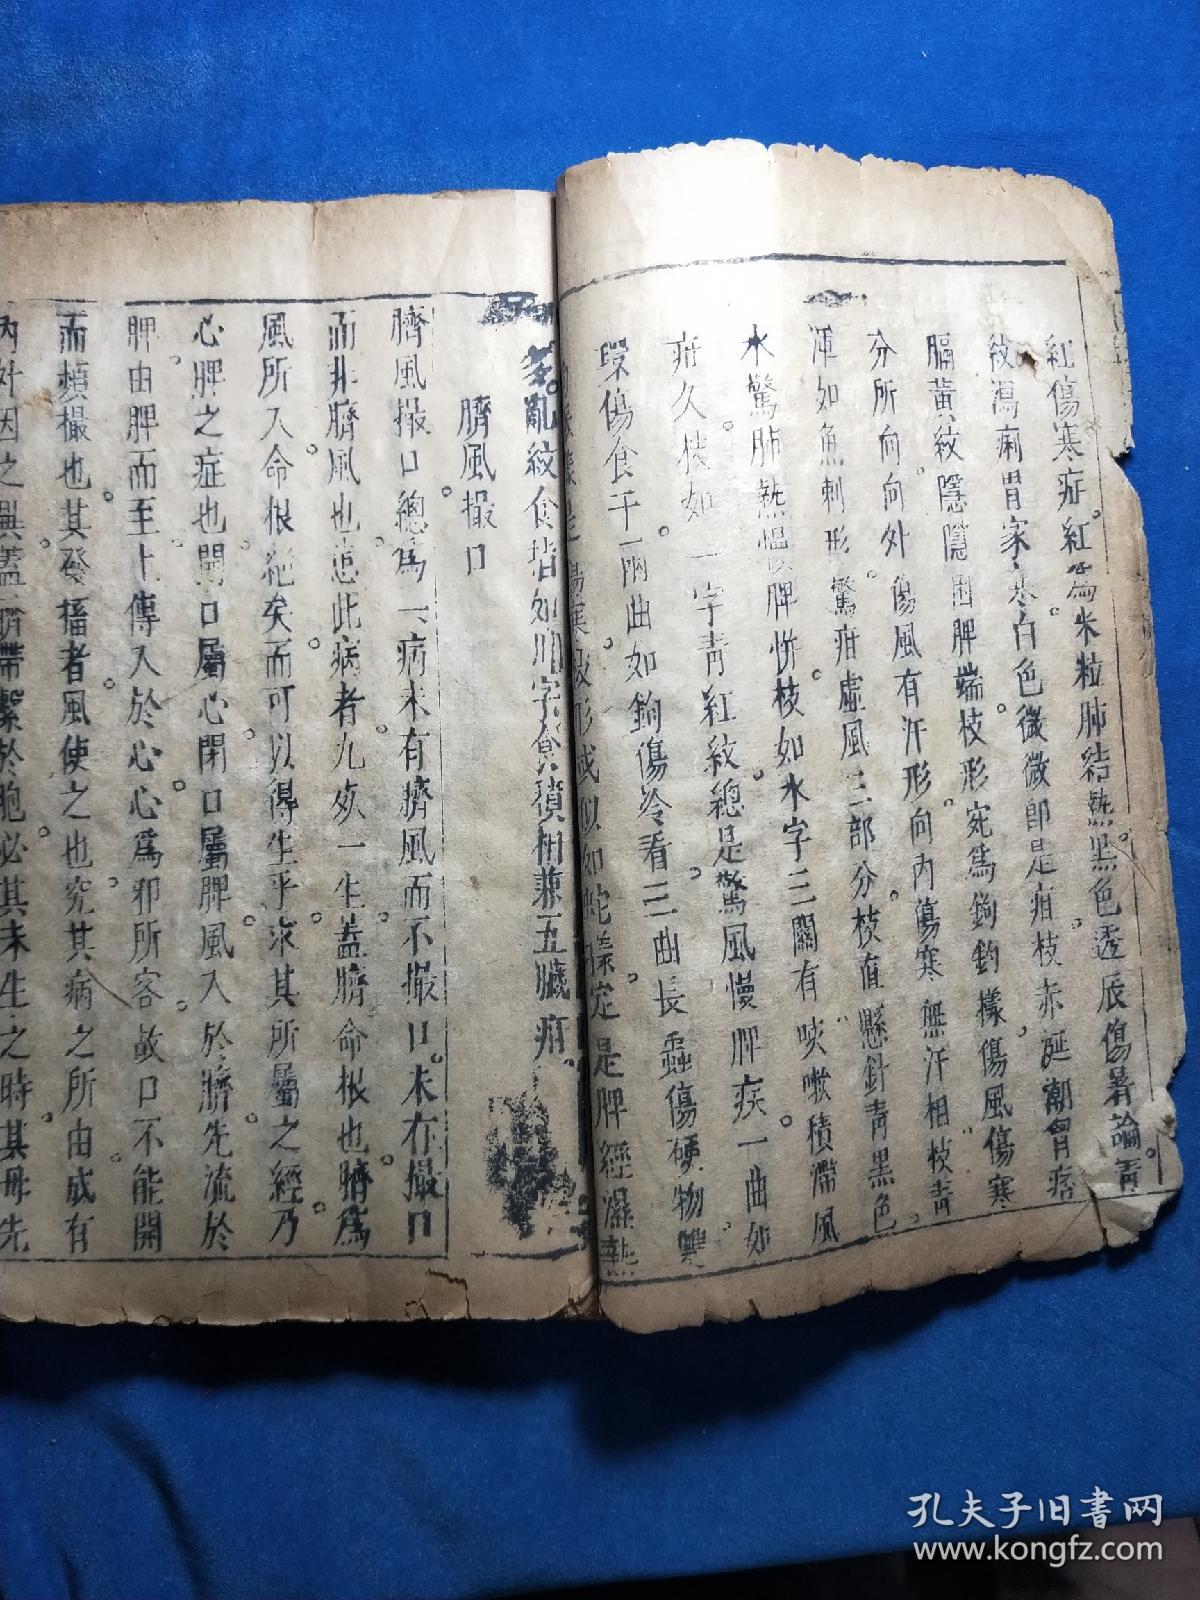 紅傷寒症。紅爲米粒肺結熱。黑色透辰傷暑論。青
紋瀉痢胃家寒。白色微微卽是疳。枝赤涎潮胷痞
膈。黃紋隱隱困脾端。枝形宛爲鉤鉤樣。傷風傷寒
分所向。向外傷風有汗形。向內傷寒無汗相。枝青
渾如魚刺形。驚疳虛風三部分。枝直懸針青黑色。
水驚肺熱慍慍脾忻。枝如水字三關有。咳嗽積滯風
疳久。枝如一字青紅紋。總是驚風慢脾疾。一曲如
環傷食子。兩曲如鉤傷冷看。三曲長蟲傷硬物。
傷寒 形或似如蛇樣。定是脾經濕熱
多。亂紋食指如川字。食積相兼五臟疳。
臍風撮口
臍風撮口總爲一病。未有臍風而不撮口。未有撮口
而非臍風也。患此病者。九死一生。蓋臍命根也。臍爲
風所入。命根絕矣。而可以得生乎。求其所屬之經。乃
心脾之症也。開口屬心。閉口屬脾。風入於臍。先流於
脾。由脾而至上。傳入於心。心爲邪所客。故口不能開
而頻撮也。其發搐者。風使之也。究其病之所由成。有
內外因之異。蓋臍帶繫於胞。必其未生之時。其母先